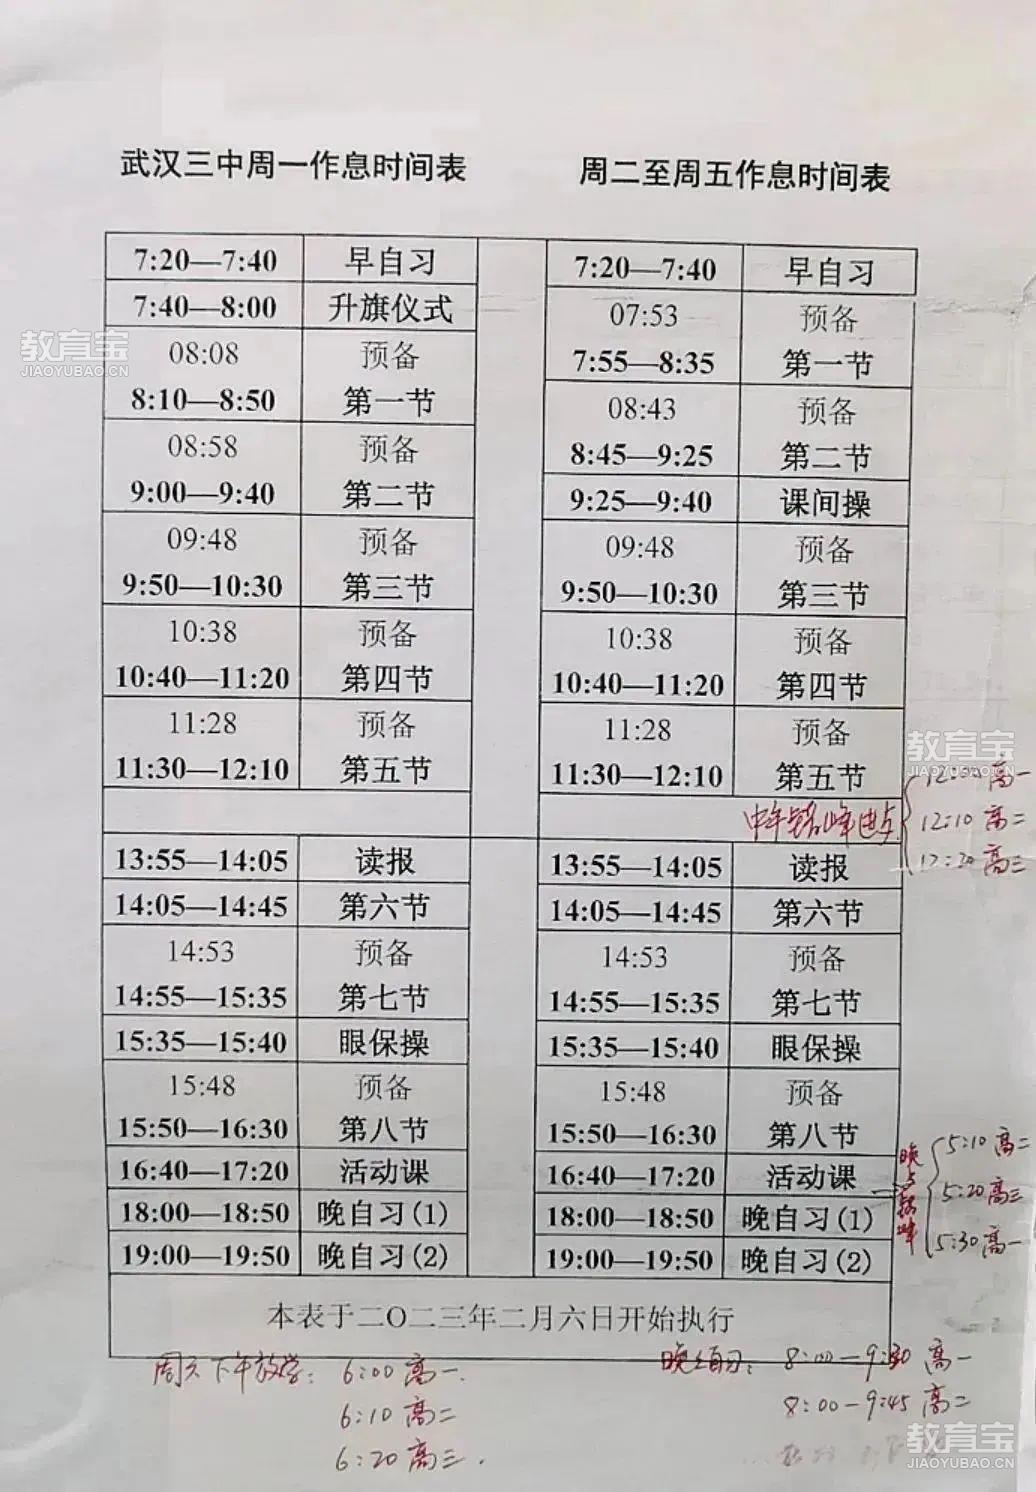 武汉三中周一作息时间表 周二至周五作息时间表
7:20—7:40 早自习 7:20—7:40 早自习
7:40—8:00 升旗仪式 07:53 预备
教育宝
JIAOYUBAO.CN
08:08 预备 7:55—8:35 第一节
8:10—8:50 第一节 08:43 预备
08:58 预备 8:45—9:25 第二节
9:00—9:40 第二节 9:25—9:40 课间操
09:48 预备 09:48 预备
9:50—10:30 第三节 9:50—10:30 第三节
10:38 预备 10:38 预备
10:40—11:20 第四节 10:40—11:20 第四节
11:28 预备 11:28 预备
教育宝
JIAOYUBAO.CN
11:30—12:10 第五节 11:30—12:10 第五节
12:00 高一
中午错峰 12:10 高二
12:20 高三
13:55—14:05 读报 13:55—14:05 读报
14:05—14:45 第六节 14:05—14:45 第六节
14:53 预备 14:53 预备
14:55—15:35 第七节 14:55—15:35 第七节
15:35—15:40 眼保操 15:35—15:40 眼保操
15:48 预备 15:48 预备
15:50—16:30 第八节 15:50—16:30 第八节
5:10 高二
16:40—17:20 活动课 16:40—17:20 活动课
5:20 高三
18:00—18:50 晚自习(1) 18:00—18:50 晚自习(1)
5:30 高一
19:00—19:50 晚自习(2) 19:00—19:50 晚自习(2)
本表于二O二三年二月六日开始执行
周六下午放学: 6:00 高一. 晚自习: 8:00—9:30 高一
6:10 高二 8:00—9:45 高二
6:20 高三.
教育宝
JIAOYUBAO.CN